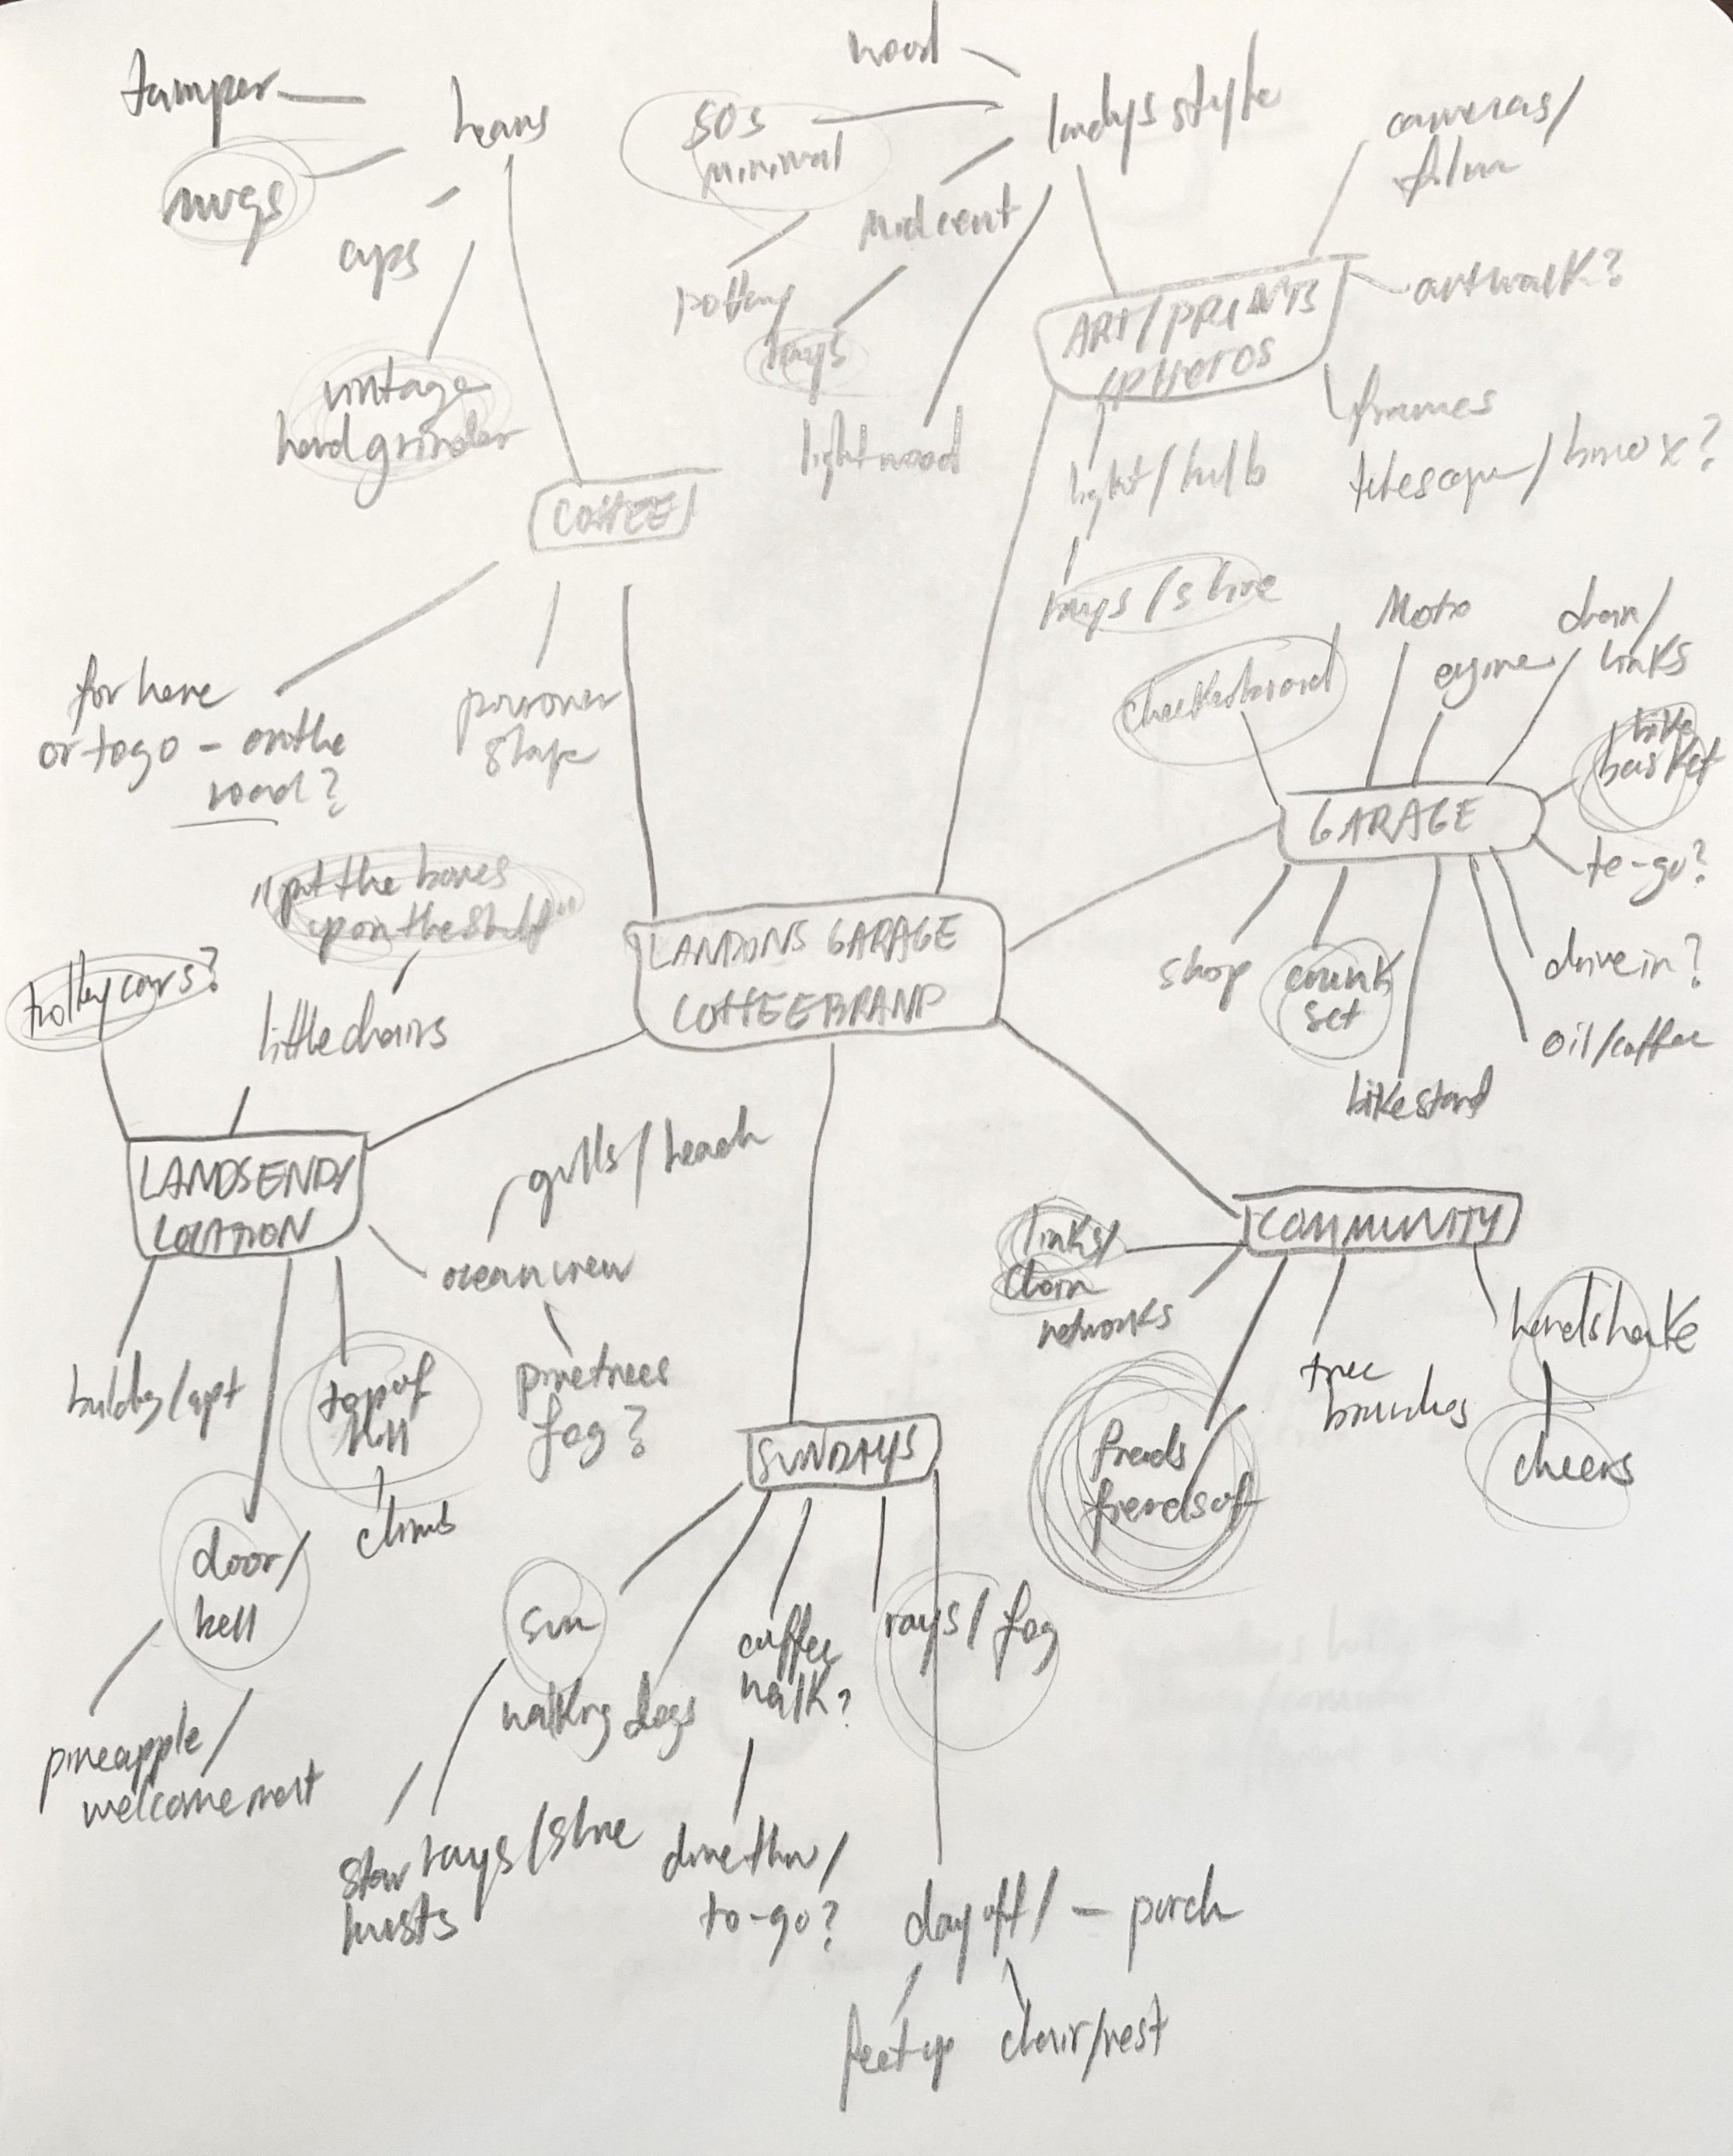 wood
tamper
beans
50s
minimal
landys style
cameras/
film
mugs
cups
midcent
pottery
rays
artwalk?
ART/PRINTS
/PHOTOS
vintage
hand grinder
light wood
frames
light/bulb
telescope/binox?
COFFEE/
rays/shine
Moto
chain/
links
engine
checkerboard
for here
or to go - on the
road?
pourover
shape
bike
basket
GARAGE
to-go?
"put the bones
up on the shelf"
LANDONS GARAGE
COFFEE BRAND
shop
crank
set
drive in?
oil/coffee
bike stand
trolley cars?
little chairs
gulls/beach
LANDSEND/
LOCATION
ocean crew
links/
chain
networks
COMMUNITY
handshake
cheers
tree
branches
building/apt
top of
hill
climb
pinetrees
fog?
friends
friends of
SUNDAYS
door/
bell
sun
walking dogs
coffee
walk?
rays/fog
pineapple/
welcome mat
star rays/shine
bursts
drive thru/
to-go?
day off/ - porch
feet up
chair/rest